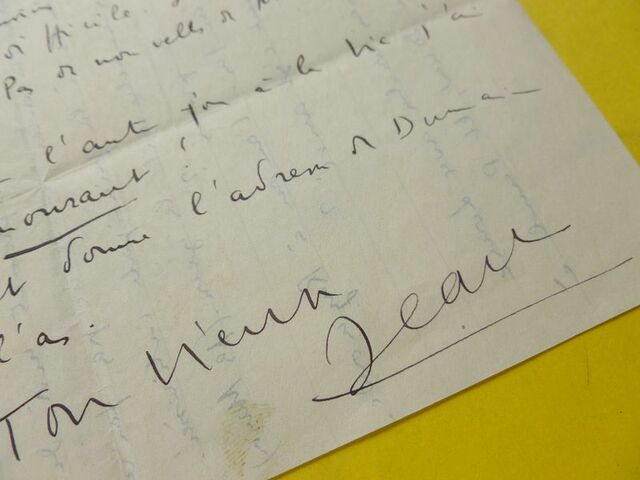 difficile.
Pas de nouvelles de
l'autre jour à la Vie j'ai
mourant !
et donne l'adresse de Dumain
l'as.
Ton vieux
Jean